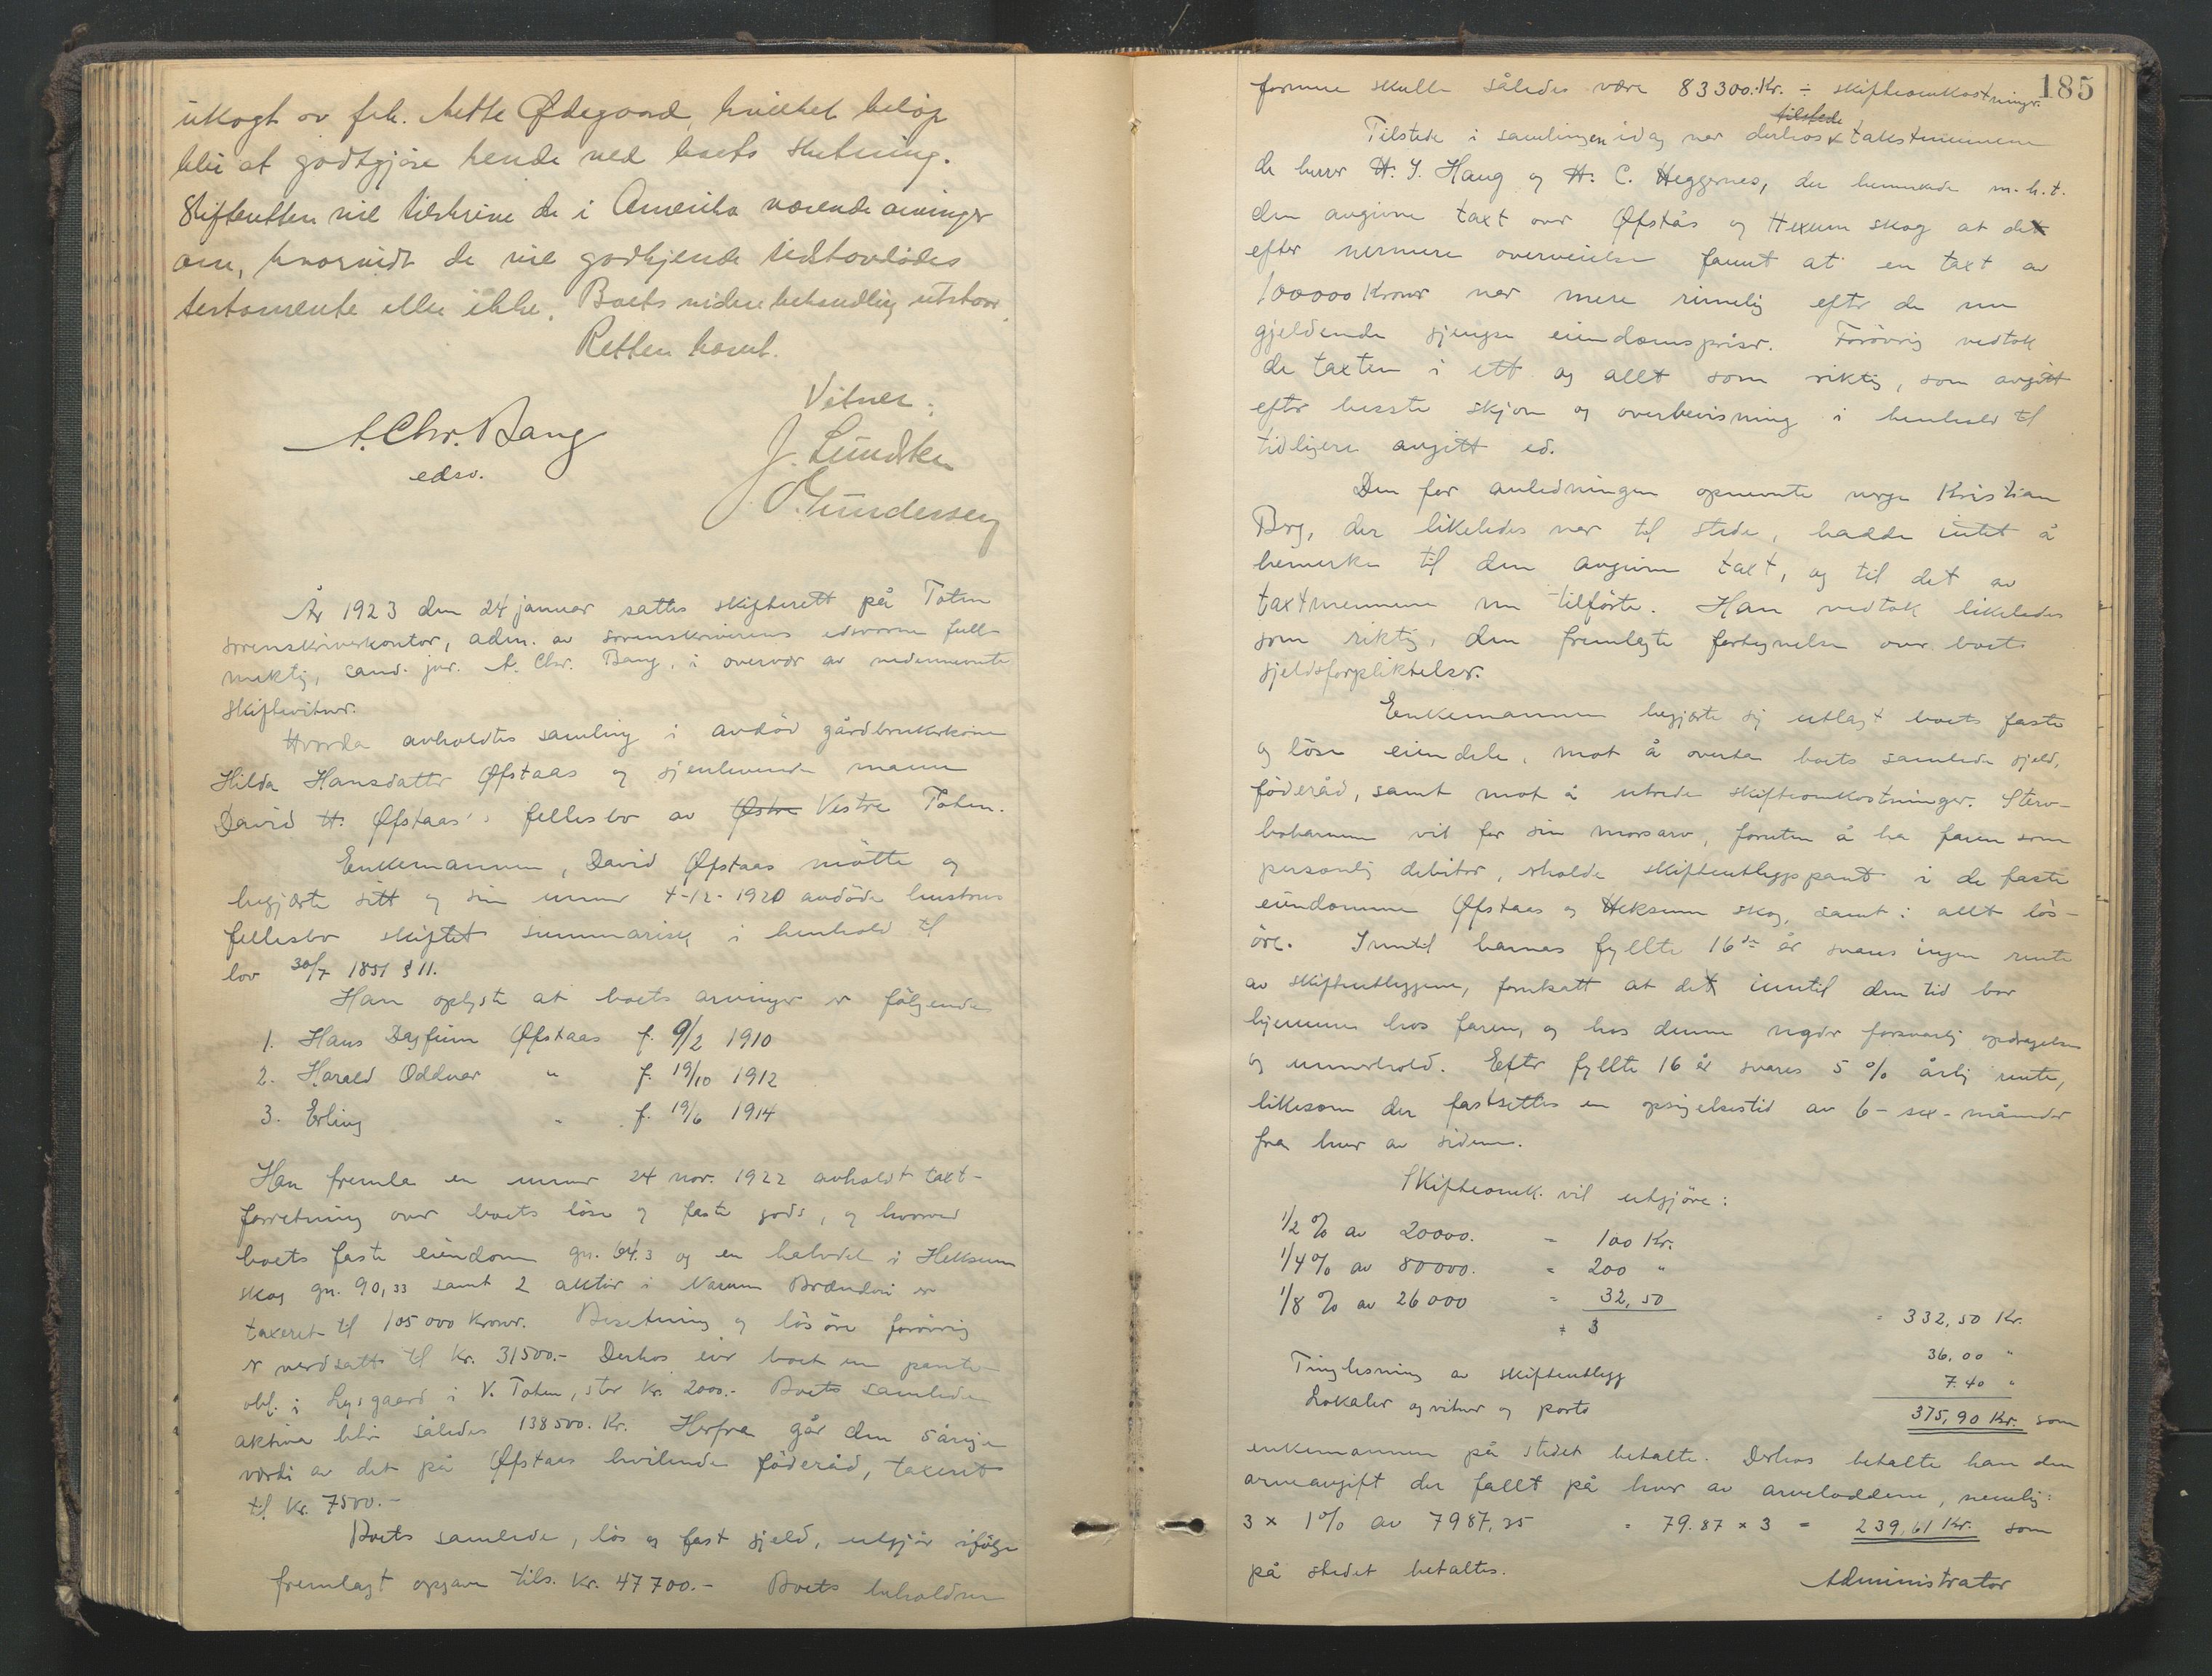 utlagt av frk. Mette Ødegaard, hvilket beløp
blir at godtgjøre hende ved boets slutning.
Skifteretten vil tilskrive de i Amerika værende arvinger
om, hvorvidt de vil godkjende avdødes
testamente eller ikke. Boets videre behandling utstaar.
Retten hævet.
Vitner:
A. Chr. Bang
edsv.
J. Lundsten
O. Gundersen
År 1923 den 24 januar sattes skifterett på Toten
sorenskriverkontor, adm. av sorenskriverens edsvorne full-
mektig, cand. jur. A. Chr. Bang, i overvær av nedennevnte
skiftevitner.
Hvorda avholdtes samling i avdød gårdbrukerkone
Hilda Hansdatter Øfstaas og gjenlevende mann
David H. Øfstaas's fellesbo av Østre Vestre Toten.
Enkemannen, David Øfstaas møtte og
begjærte sitt og sin unner 4-12-1920 avdøde hustrus
fellesbo skiftet summarisk i henhold til
lov 30/7 1851 § 11.
Han oplyste at boets arvinger er følgende
1. Hans Dagfinn Øfstaas f. 9/2 1910
2. Harald Oddvar " f. 19/10 1912
3. Erling " f. 19/6 1914
Han fremla en unner 24 nov. 1922 avholdt taxt-
forretning over boets løse og faste gods, og hvorved
boets faste eiendom gn. 64.3 og en halvdel i Heksum
skog gn. 90,33 samt 2 aktier i Brænderi er
taxeret til 105000 kroner. Besetning og løsøre forøvrig
er verdsatt til Kr. 31500.- Derhos eier boet en pante-
obl. i Lysgaard i V. Toten, stor Kr. 2000.- Boets samlede
aktiva blir således 138500. Kr. Herfra går den 5årige
verdi av det på Øfstaas hvilende föderåd, taxeret
til Kr. 7500.-
Boets samlede, løs og fast gjeld, utgjør ifølge
fremlagt opgave tils. Kr. 47700.- Boets beholdne
185
formue skulle således være 83300.-Kr. ÷ skifteomkostninger.
tilstede
Tilstede i samlingen idag var derhos takstmennene
de herrer H. J. Haug og H. C. Heggernes, der bemerkede m.h.t.
den avgivne taxt over Øfstås og Hexum skog at det
efter nermere overveielse fannt at en taxt av
100000 Kroner var mere rimelig efter de nu
gjeldende gjengse eiendomspriser. Forøvrig vedtok
de taxten i ett og allt som riktig, som avgitt
efter beste skjøn og overbevisning i henhold til
tidligere avgitt ed.
Den for anledningen opnevnte verge Kristian
Berg, der likeledes var til stede, hadde intet å
bemerke til den avgivne taxt, og til det av
taxtmennene nu tilførte. Han vedtok likeledes
som riktig, den fremlagte fortegnelse over boets
gjeldsforpliktelser.
Enkemannen begjærte sig utlagt boets faste
og løse eiendele, mot å overta boets samlede gjeld,
föderåd, samt mot å utrede skifteomkostninger. Sterv-
bobarnene vil for sin morsarv, foruten å ha faren som
personlig debitor, erholde skifteutleggspant i de faste
eiendomme Øfstaas og Heksum skog, samt i allt løs-
øre. Inntil barnas fyllte 16de år svares ingen rente
av skifteutleggene, forutsatt at det inntil den tid bor
hjemme hos faren, og hos denne nyder forsvarlig opdragelse
og unnerhold. Efter fyllte 16 år svares 5 % årlig rente,
likesom der fastsettes en opsigelsestid av 6 - sex - måneder
fra hver av sidene.
Skifteomk. vil utgjøre:
1/2 % av 20000. = 100 Kr.
1/4 % av 80000. = 200 "
1/8 % av 26000 = 32,50
= 3
= 332,50 Kr.
Tinglesning av skifteutlegg 36,00 "
Lokaler og vitner og porto 7.40 "
375,90 Kr. som
enkemannen på stedet betalte. Derhos betalte han den
arveavgift der fallt på hver av arveloddene, nemlig:
3 x 1% av 7987,25 = 79.87 x 3 = 239,61 Kr. som
på stedet betaltes.
Administrator